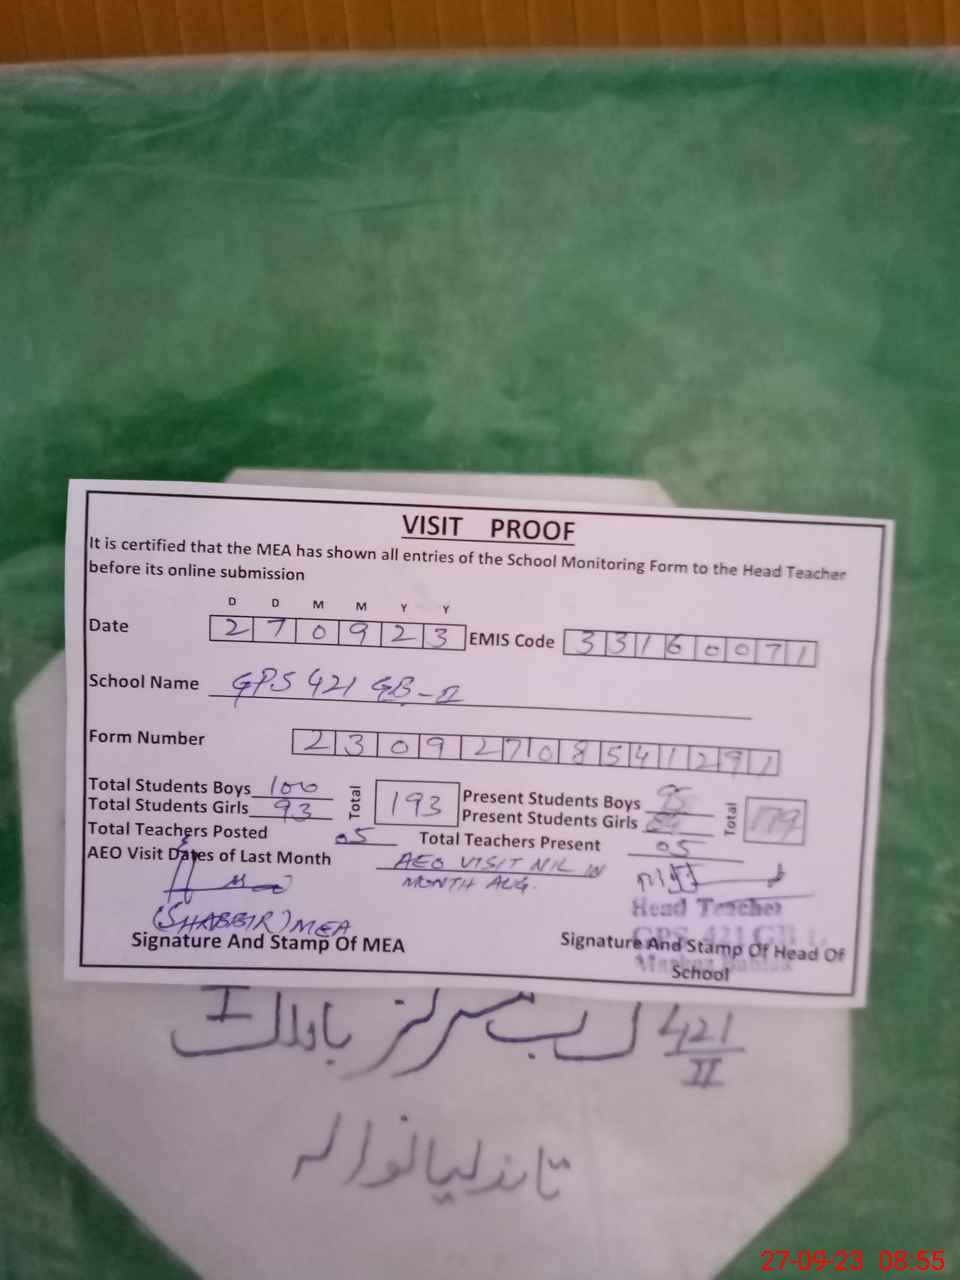 VISIT PROOF
It is certified that the MEA has shown all entries of the School Monitoring Form to the Head Teacher
before its online submission
D D M M Y Y
Date 2 7 0 9 2 3 EMIS Code 3 3 1 6 0 0 7 1
School Name GPS 421 GB-II
Form Number 2 3 0 9 2 7 0 8 5 4 1 2 9 1
Total Students Boys 100 Total 193 Present Students Boys 95 Total 179
Total Students Girls 93 Present Students Girls
Total Teachers Posted 05 Total Teachers Present 05
AEO Visit Dates of Last Month AEO VISIT NIL IN
MONTH AUG.
Head Teacher
(SHABBIR) MEA
GPS 421 GB
Signature And Stamp Of MEA Signature And Stamp Of Head Of
School
421/II گ ب مرکز باہلک I
تاندلیانوالہ
27-09-23 08:55